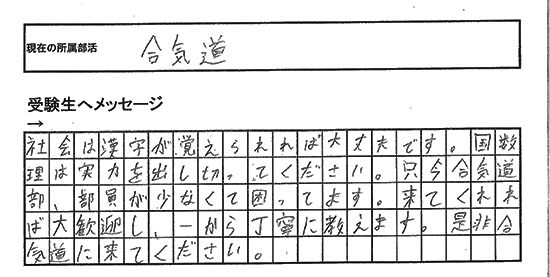 現在の所属部活 合気道
受験生へメッセージ
→
社会は漢字が覚えられれば大丈夫です。国数
理は実力を出し切ってください。只今合気道
部、部員が少なくて困ってます。来てくれれ
ば大歓迎し、一から丁寧に教えます。是非合
気道に来てください。